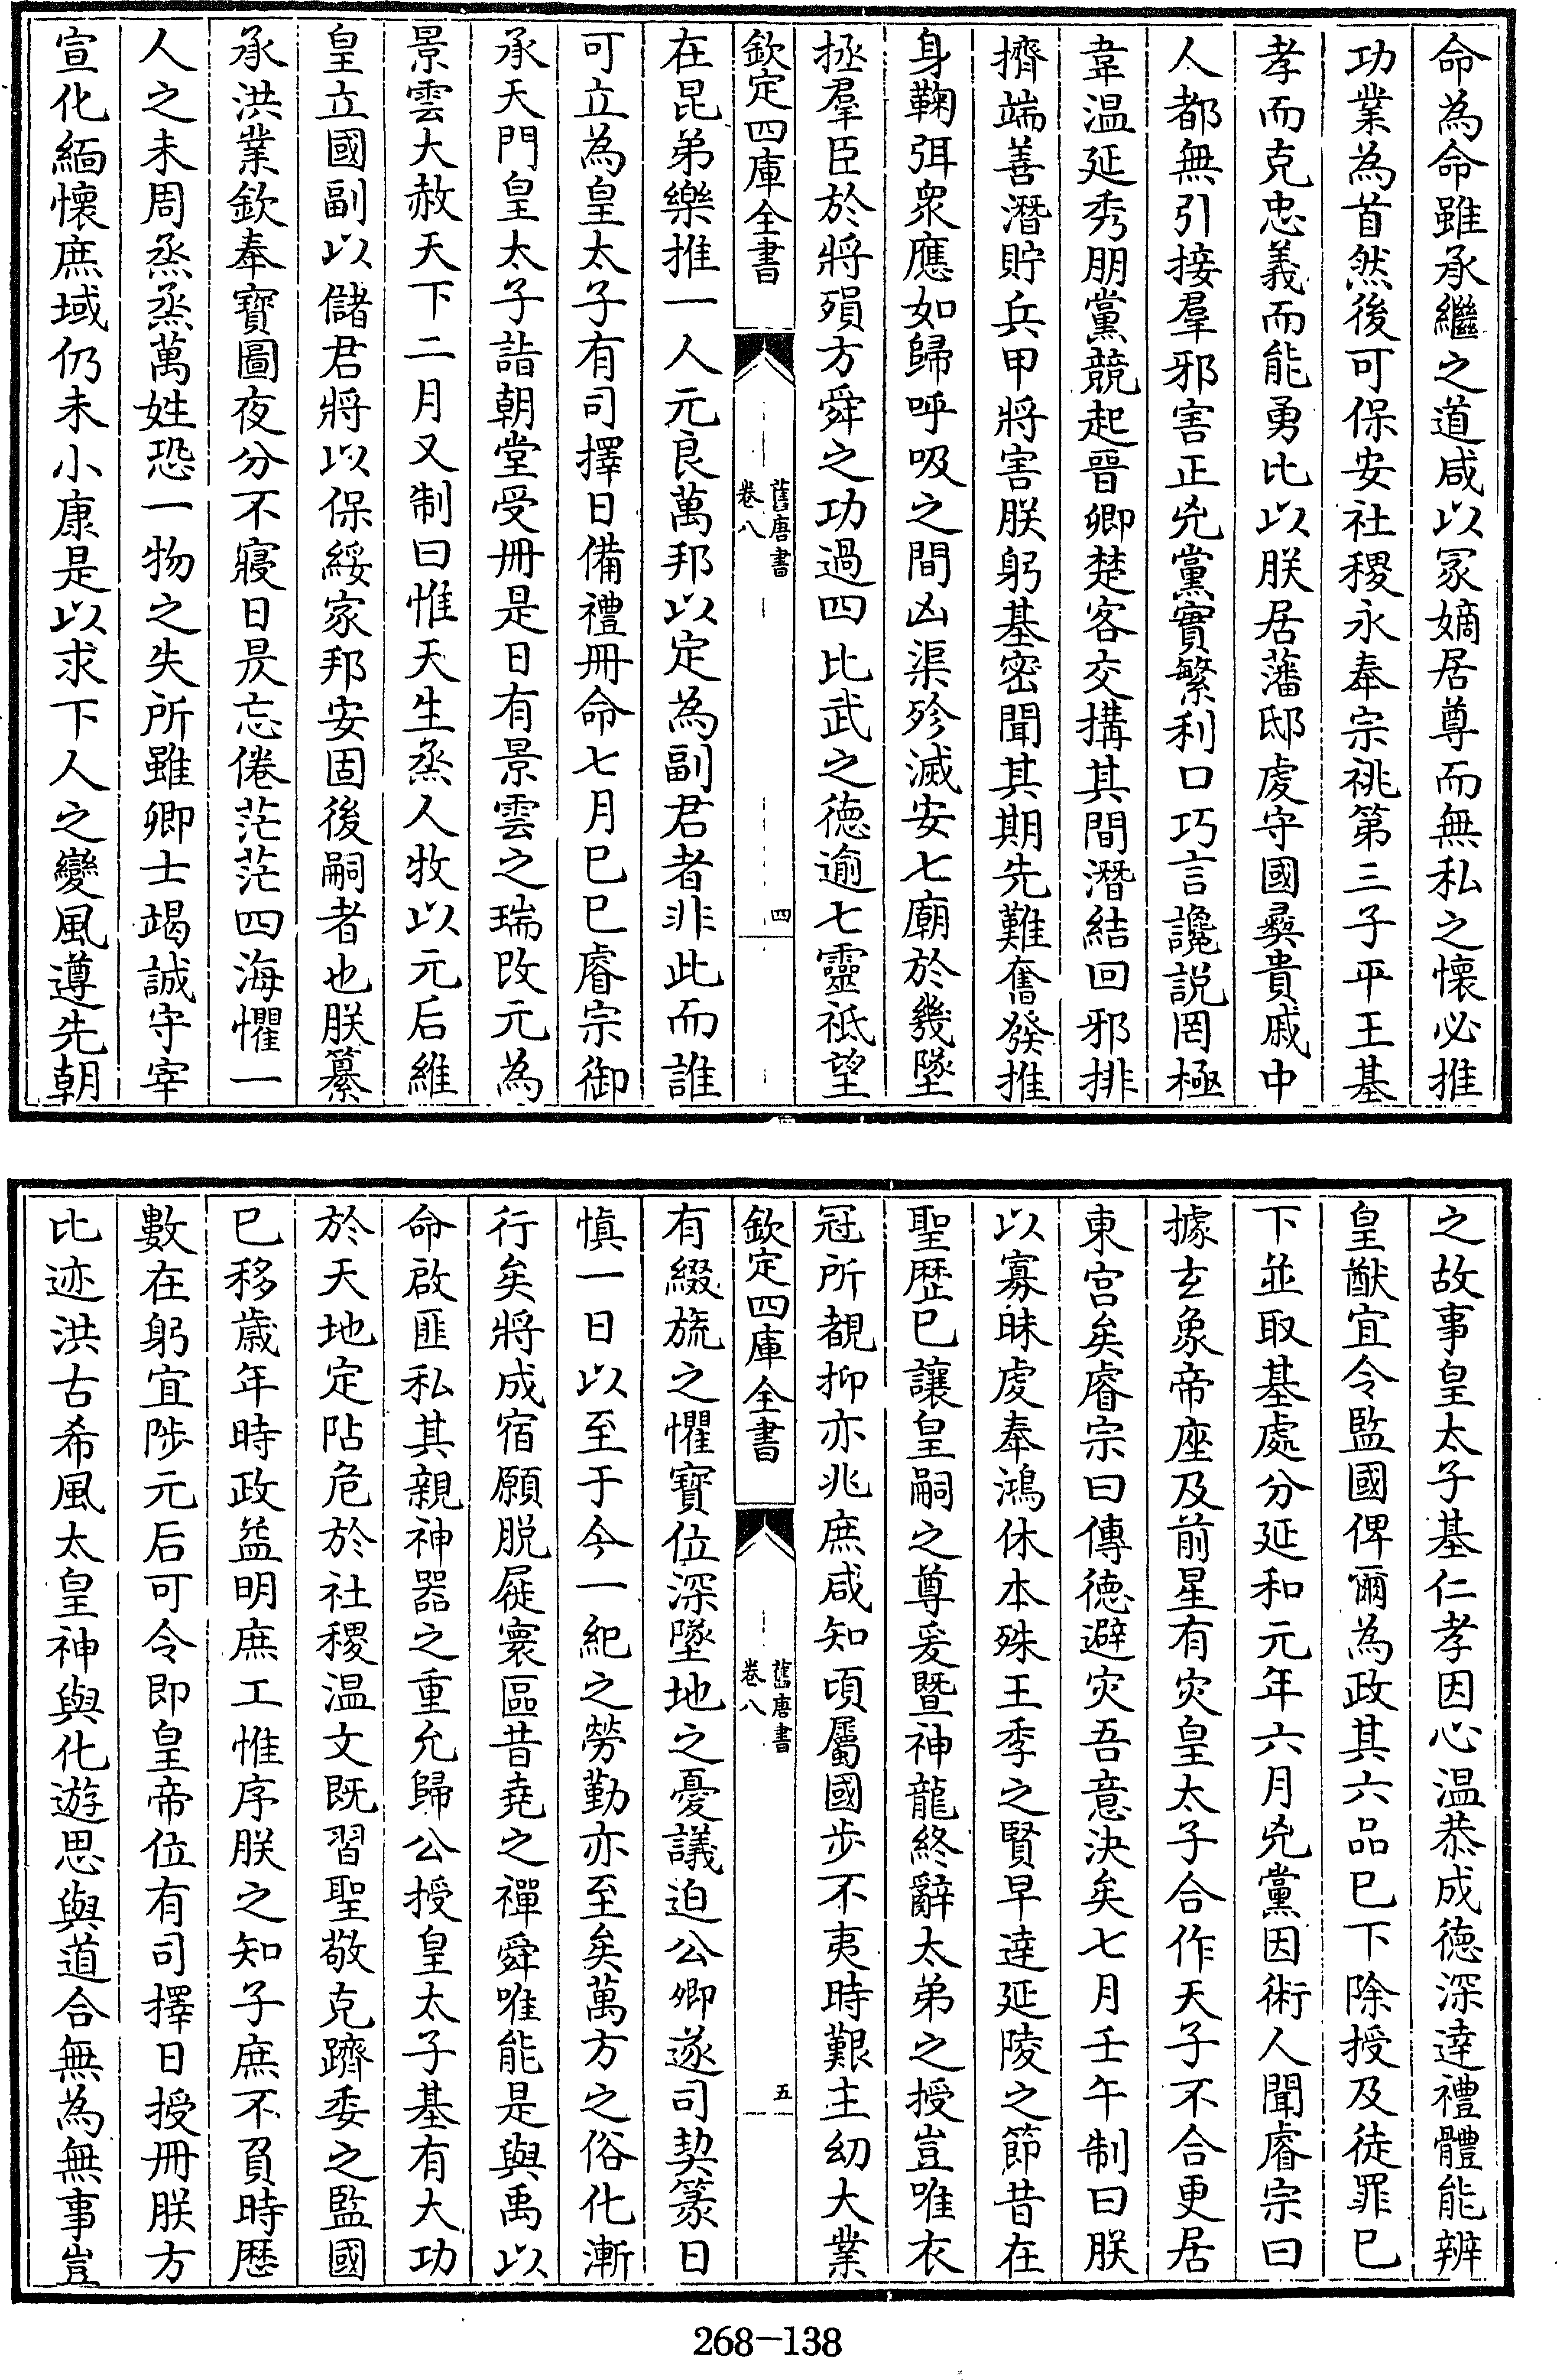 命為命雖承繼之道咸以冢嫡居尊而無私之懷必推
功業為首然後可保安社稷永奉宗祧第三子平王基
孝而克忠義而能勇比以朕居藩邸虔守國彞貴戚中
人都無引接羣邪害正兇黨實繁利口巧言讒説罔極
韋温延秀朋黨競起晉卿楚客交搆其間潛結回邪排
擠端善潛貯兵甲將害朕躬基密聞其期先難奮發推
身鞠弭衆應如歸呼吸之間凶渠殄滅安七廟於幾墜
拯羣臣於將殞方舜之功過四比武之德逾七靈祗望
欽定四庫全書
舊唐書
卷八
四
在昆弟樂推一人元良萬邦以定為副君者非此而誰
可立為皇太子有司擇日備禮冊命七月己巳睿宗御
承天門皇太子詣朝堂受冊是日有景雲之瑞改元為
景雲大赦天下二月又制曰惟天生烝人牧以元后維
皇立國副以儲君將以保綏家邦安固後嗣者也朕纂
承洪業欽奉寶圖夜分不寢日昃忘倦茫茫四海懼一
人之未周烝烝萬姓恐一物之失所雖卿士竭誠守宰
宣化緬懷庶域仍未小康是以求下人之變風遵先朝
之故事皇太子基仁孝因心温恭成德深達禮體能辨
皇猷宜令監國俾爾為政其六品巳下除授及徒罪巳
下並取基處分延和元年六月兇黨因術人聞睿宗曰
據玄象帝座及前星有灾皇太子合作天子不合更居
東宮矣睿宗曰傳德避灾吾意決矣七月壬午制曰朕
以寡昧虔奉鴻休本殊王季之賢早達延陵之節昔在
聖歴巳讓皇嗣之尊爰暨神龍終辭太弟之授豈唯衣
冠所覩抑亦兆庶咸知頃屬國步不夷時艱主幼大業
欽定四庫全書
舊唐書
卷八
五
有綴旒之懼寶位深墜地之憂議迫公卿遂司契篆日
慎一日以至于今一紀之勞勤亦至矣萬方之俗化漸
行矣將成宿願脱屣寰區昔堯之禪舜唯能是與禹以
命啟匪私其親神器之重允歸公授皇太子基有大功
於天地定阽危於社稷温文既習聖敬克躋委之監國
巳移歲年時政益明庶工惟序朕之知子庶不負時歴
數在躬宜陟元后可令即皇帝位有司擇日授冊朕方
比迹洪古希風太皇神與化遊思與道合無為無事豈
268-138